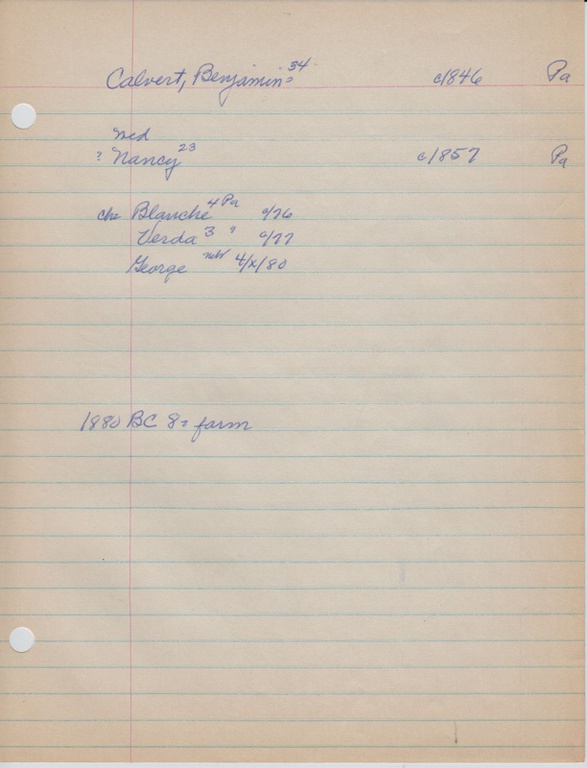 Calvert, Benjamin 34 c1846 Pa
md
? Nancy 23 c1857 Pa
ch: Blanche 4 Pa c/76
Verda 3 " c/77
George neb 4/x/80
1880 BC 8= farm